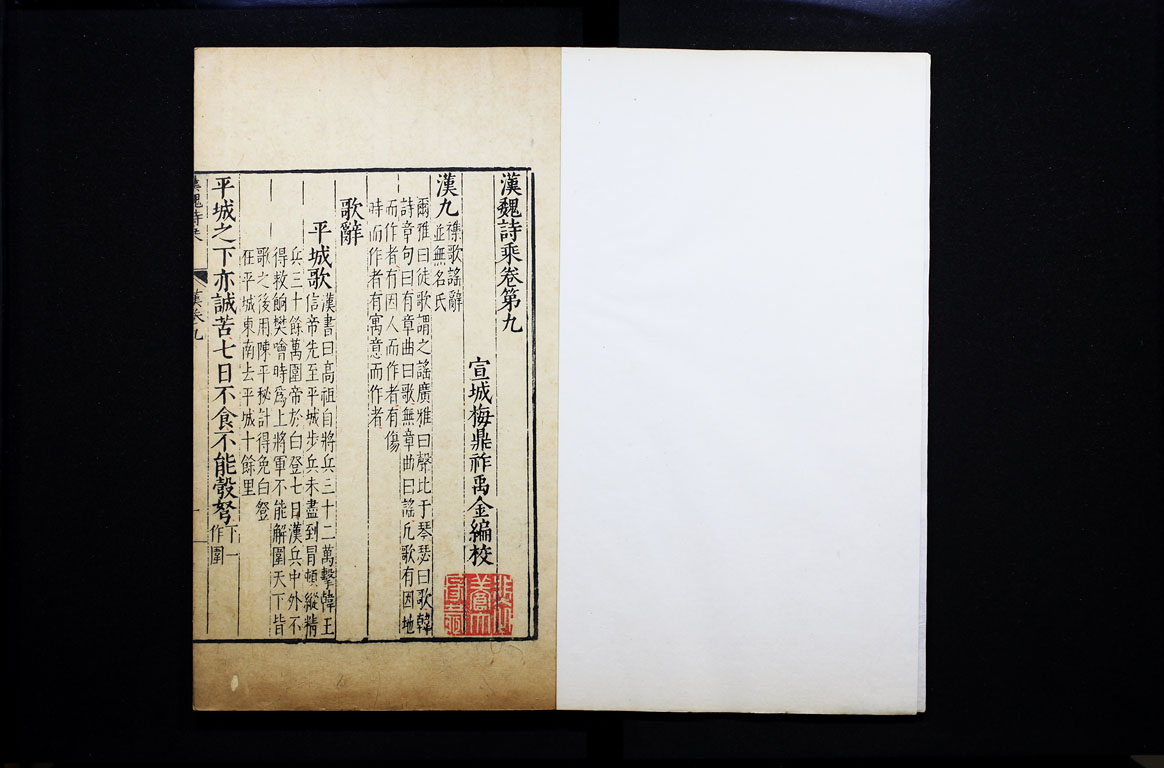 漢魏詩乘卷第九
宣城梅鼎祚禹金編校
漢九
襍歌謠辭
並無名氏
爾雅曰徒歌謂之謠廣雅曰聲比于琴瑟曰歌韓
詩章句曰有章曲曰歌無章曲曰謠凡歌有因地
而作者有因人而作者有傷
時而作者有寓意而作者
歌辭
平城歌
漢書曰高祖自將兵三十二萬擊韓王
信帝先至平城步兵未盡到冒頓縱精
兵三十餘萬圍帝於白登七日漢兵中外不
得救餉樊噲時爲上將軍不能解圍天下皆
歌之後用陳平秘計得免白登
在平城東南去平城十餘里
平城之下亦誠苦七日不食不能彀弩
下一
作圍
漢魏詩乘
漢卷九